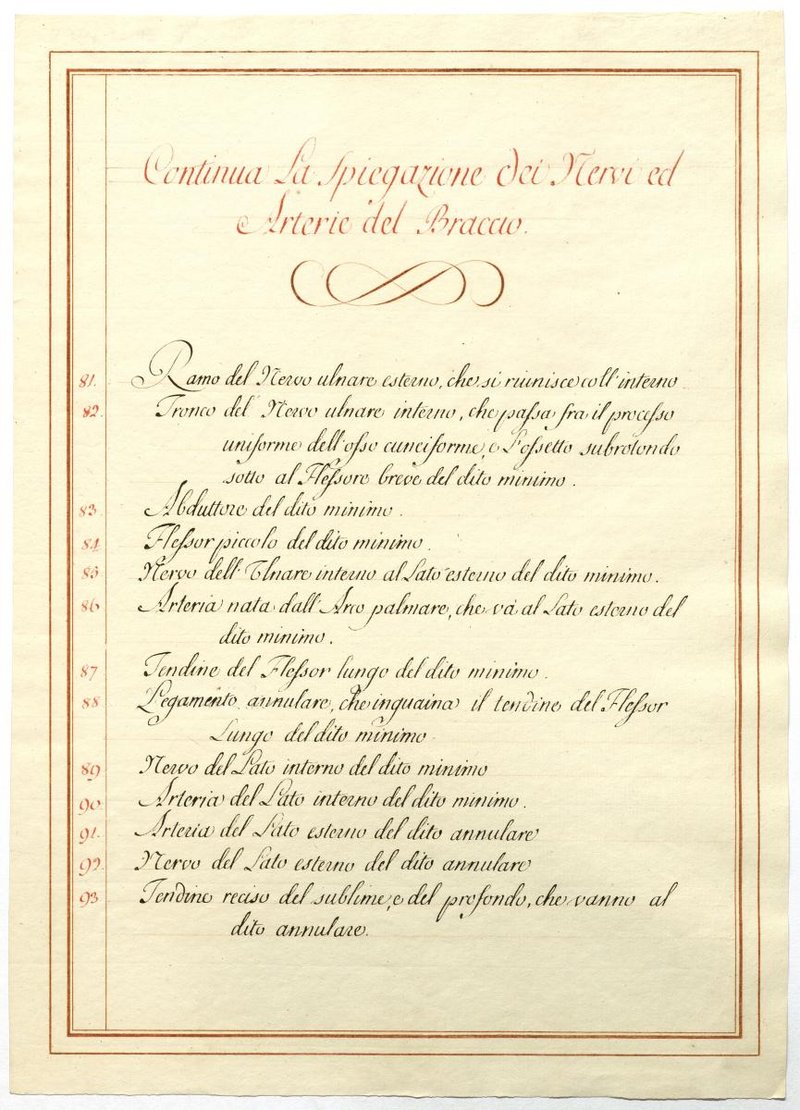 Continua La Spiegazione dei Nervi ed
Arterie del Braccio.
81. Ramo del Nervo ulnare esterno, che si riunisce coll' interno
82. Tronco del Nervo ulnare interno, che passa fra il processo
uniforme dell' osso cuneiforme, e l'ossetto subrotondo
sotto al Flessore breve del dito minimo.
83. Abduttore del dito minimo.
84. Flessor piccolo del dito minimo.
85 Nervo dell' Ulnare interno al Lato esterno del dito minimo.
86 Arteria nata dall' Arco palmare, che và al Lato esterno del
dito minimo.
87 Tendine del Flessor lungo del dito minimo.
88 Legamento annulare, che inguaina il tendine del Flessor
Lungo del dito minimo
89 Nervo del Lato interno del dito minimo
90 Arteria del Lato interno del dito minimo.
91. Arteria del Lato esterno del dito annulare
92. Nervo del Lato esterno del dito annulare
93 Tendine reciso del sublime, e del profondo, che vanno al
dito annulare.